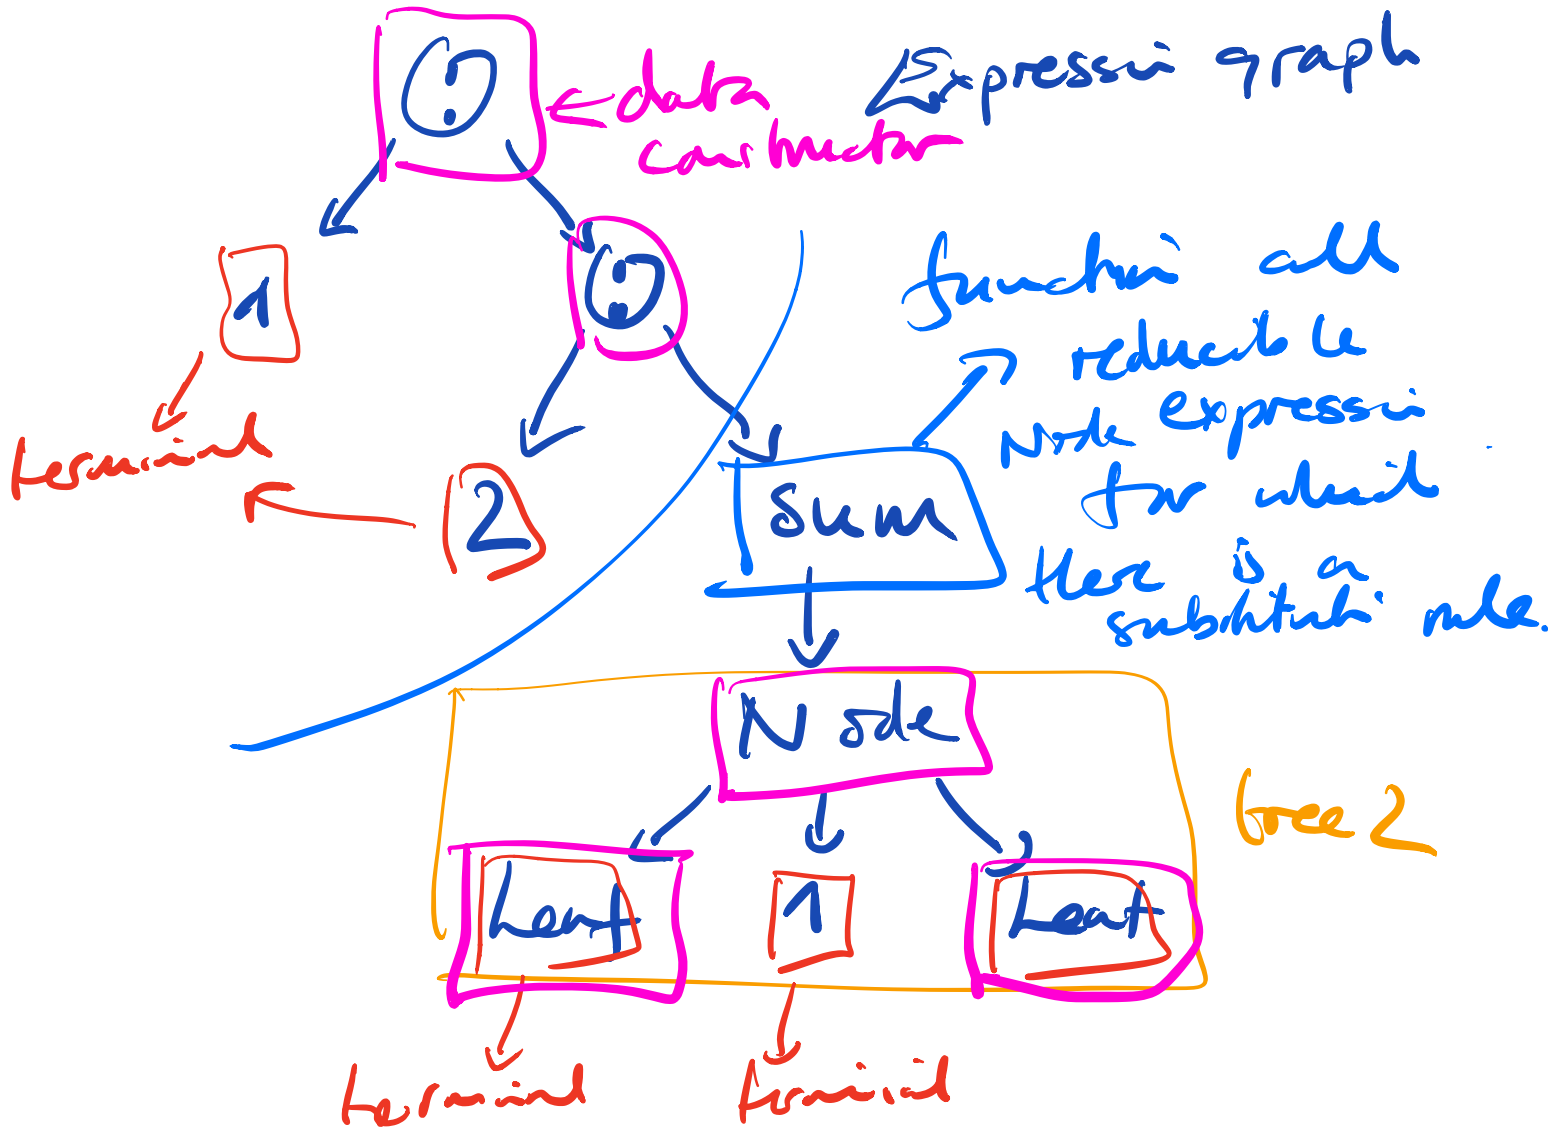 :
← data
constructor
Expression graph
:
1
function call
reducible
Node expression
for which
there is a
substitution rule.
terminal
2
sum
Node
tree 2
Leaf
1
Leaf
terminal
terminal